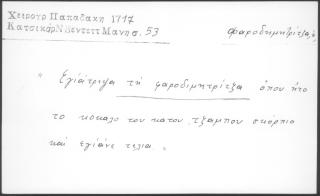 Χειρογρ Παπαδάκη 1717
Κατσικάρ Ν Βεντέττ Μανησ. 53
φαροδημητρίτζα, ἡ
" Ἐγιάτρεψα τὴ φαροδημητρίτζα ὁπου ἦτο
το κόκαλο του κάτου τζαμπου σκόρπιο
καὶ ἐγιάνε τελια. "